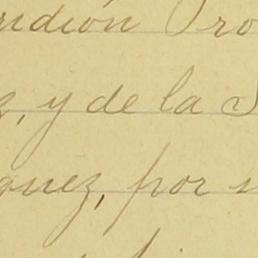 ridión Pro
z, y de la S
quez, por